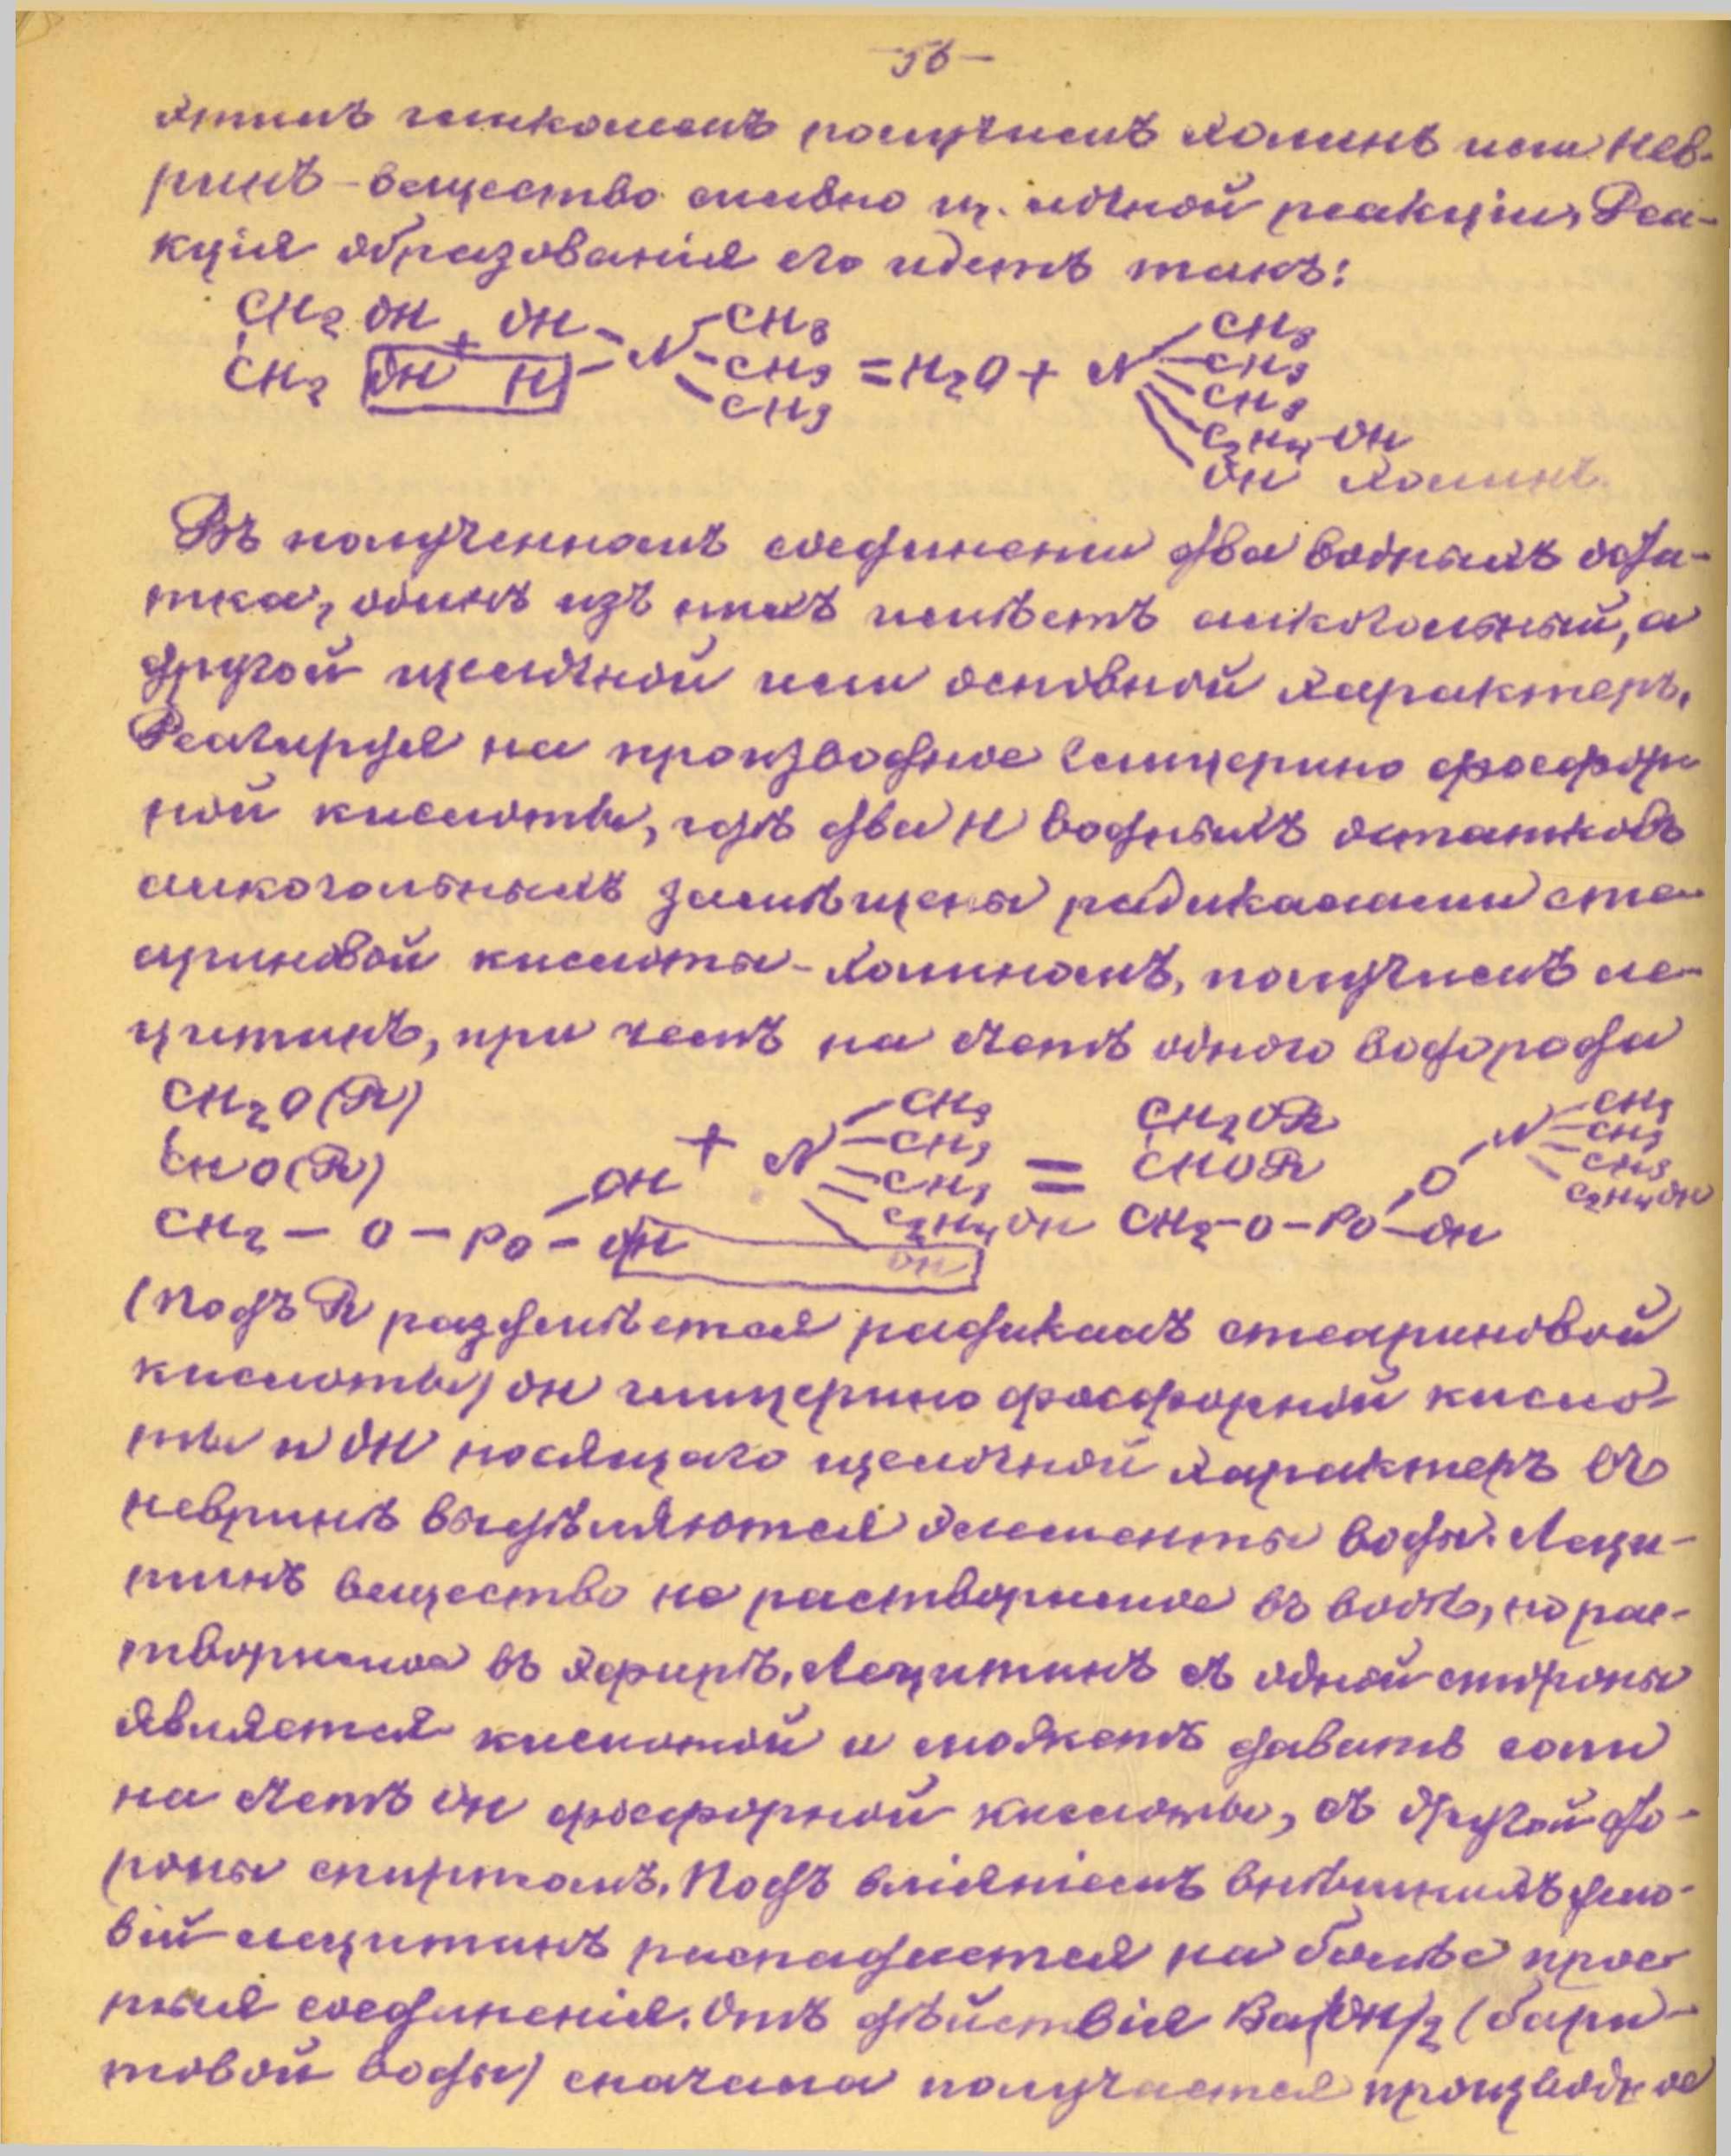 -56-
этинъ гликолемъ получимъ холинъ или нев-
ринъ - вещество сильно щелочной реакціи, Реа-
кція образованія его идетъ такъ:
CH2 OH + OH - N - CH3
CH2 OH H - CH3 = H2O + N - CH3
CH3 CH3
CH3
C2H4-OH
OH Холинъ.
Въ полученномъ соединеніи два водныхъ оста-
тка, одинъ изъ нихъ имѣетъ алкогольный, а
другой щелочной или основной характеръ.
Реагируя на производное глицерино фосфор
ной кислоты, гдѣ два H водныхъ остатковъ
алкогольныхъ замѣщены радикалами сте-
ариновой кислоты - холиномъ, получимъ ле-
цитинъ, при чемъ на счетъ одного водорода
CH2O(R) CH3 CH2OR CH3
CHO(R) + N - CH3 = CHOR N - CH3
OH CH3 O CH3
CH2 - O - PO - OH C2H4OH CH2-O-PO-OH C2H4OH
OH
(Подъ R разумѣется радикалъ стеариновой
кислоты) OH глицерино фосфорной кисло-
ты и OH носящаго щелочной характеръ въ
невринѣ выдѣляются элементы воды. Леци-
тинъ вещество не растворимое въ водѣ, но рас-
творимое въ эфирѣ. Лецитинъ съ одной стороны
является кислотой и можетъ давать соли
на счетъ OH фосфорной кислоты, съ другой сто-
роны спиртомъ. Подъ вліяніемъ внѣшнихъ усло-
вій лецитинъ распадается на болѣе прос
тыя соединенія. Отъ дѣйствія Ba(OH)2 (бари-
товой воды) сначала получается производное